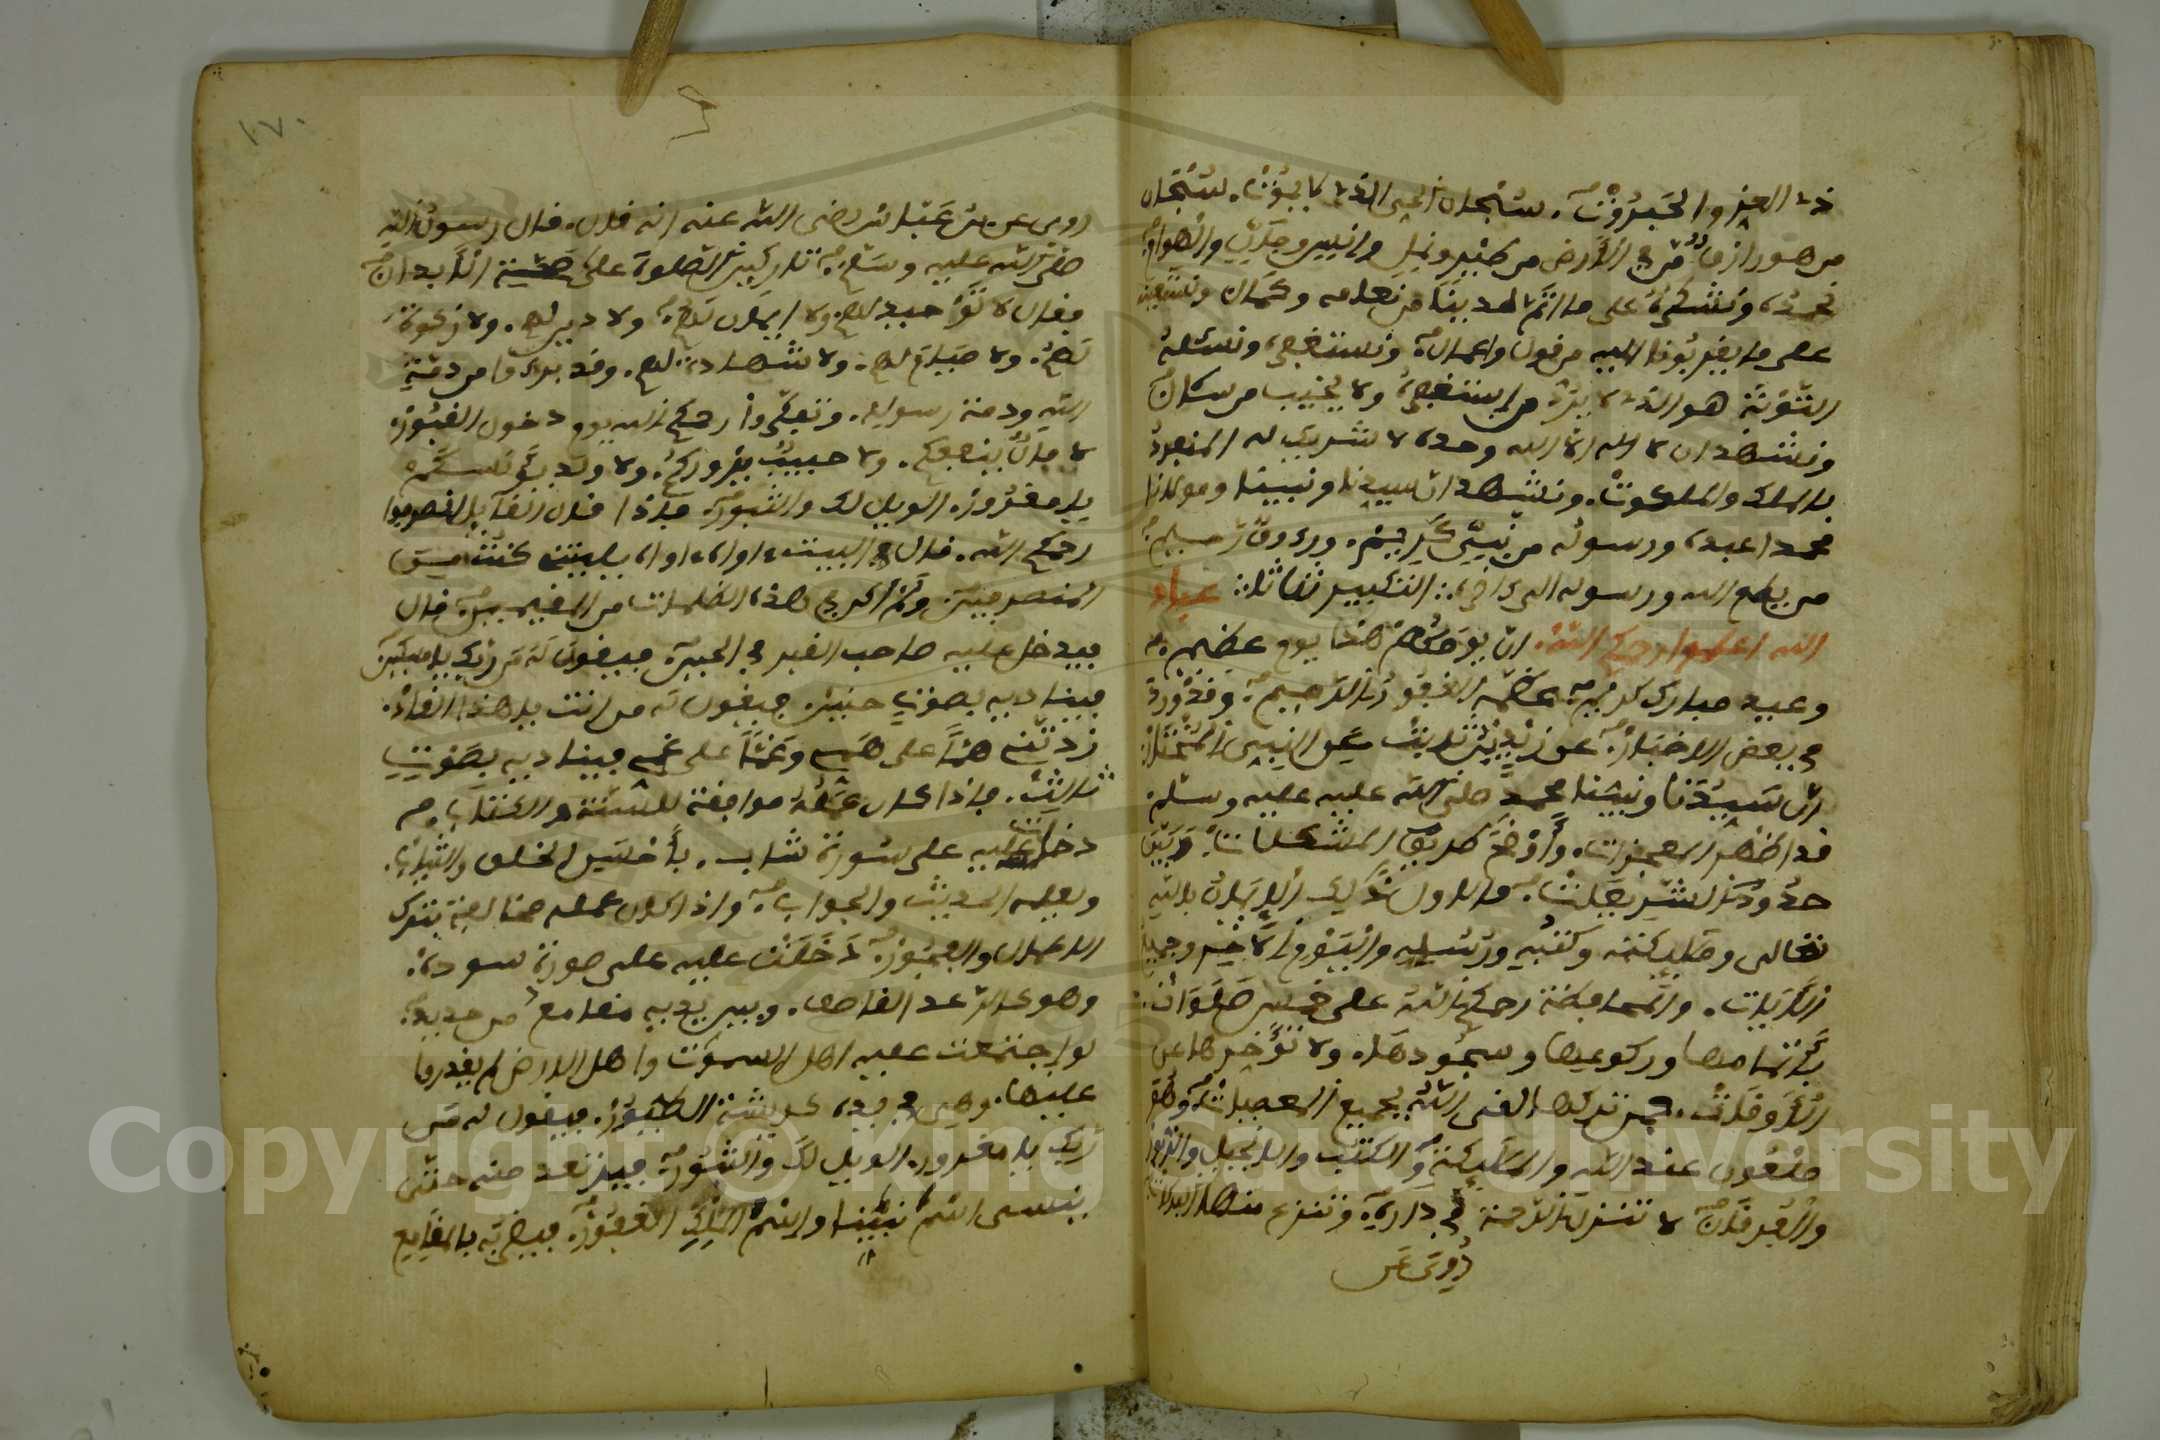 ذي العز والجبروت. سبحان الحي الذي لا يموت. سبحان
من هو رازق من في الأرض من طير ونمل وانس وجن والهوام
نحمده ونشكره على ما اتم لدينا من نعامه وكمال ونستعينه
على ما يقربونا اليه من قول واعمال ونستغفره ونسئله
التوبة هو الذي لا يرد من استغفره ولا يخيب من سال
ونشهد ان لا اله الا الله وحده لا شريك له المنفرد
بالملك والملكوت. ونشهد ان سيدنا ونبينا ومولانا
محمدا عبده ورسوله من نبي كريم. ورءوف رحيم
من يطع الله ورسوله الى اخره التكبير ثلاثا عباد
الله اعلموا رحمكم الله. ان يومكم هذا يوم عظيم
وعيد مبارك كريم عظمه الغفور الرحيم. وقد ورد
في بعض الاخبار عن زيد بن ثابت عن النبي المختار
ان سيدنا ونبينا محمد صلى الله عليه وسلم
قد اظهر المعجزات. وأوضح طريق المشكلات. وبين
حدود الشريعات. فالاول ذلك الايمان بالله
تعالى وملايكته وكتبه ورسله واليوم الاخر وجميع
الايات. والمحافظة رحمكم الله على خمس صلوات
بإتمامها وركوعها وسجودها. ولا تؤخرها عن
الاوقات. فمن تركها لقي الله بجميع المعصيات وهو
ملعون عند الله والملايكة و الكتب والانجيل والزبور
والفرقان لا تنزل الرحمة في داره وتنزع منها البركات
روي عن
١٧٠
روي عن بن عباس رضي الله عنه انه قال. قال رسول الله
صلى الله عليه وسلم تاركين الصلوة على خمسة الابدان
فقال لا توحيد لهم ولا ايمان لهم ولا دين لهم. ولا زكوة
لهم. ولا صيام لهم. ولا شهادة لهم. وقد برءوا من ذمة
الله وذمة رسوله. وتفكروا رحمكم الله يوم دخول القبور
لا مال ينفعكم. ولا حبيب يزوركم. ولا ولد
يا مغرور. الويل لك والثبور. فاذا قال انصرفوا
رحمكم الله. قال الميت، اواه، اواه، يا ليتني كنت من
المنصرفين. ولم اكن في هذه الظلمات من المقيمين قال
فيدخل عليه صاحب القبر في الحين فيقول له من ربك يا مسكين
فيناديه بصوت حنين. فيقول له من انت يا هذا
زدتني هما على همي وغما على غمي فيناديه بصوت
ثالث. فاذا كان عمله موافقة للسنة والكتاب
دخل عليه على سورة شاب. بأحسن الخلق والثياب.
ويعلمه الحديث والجواب. واذا كان عمله مخالفة بترك
الاعمال والفجور دخلت عليه على صورة سوداء.
وهو كالرعد القاصف. وبين يديه مقامع من حديد
لو اجتمعت عليه اهل السموت واهل الارض لم يقدروا
عليها. وهي في يده كريشة الطيور. فيقول له من
ربك يا مغرور. الويل لك والثبور فيرتعد منه حتى
ينسى اسم نبينا واسم الملك الغفور. فيضربه بالمقامع